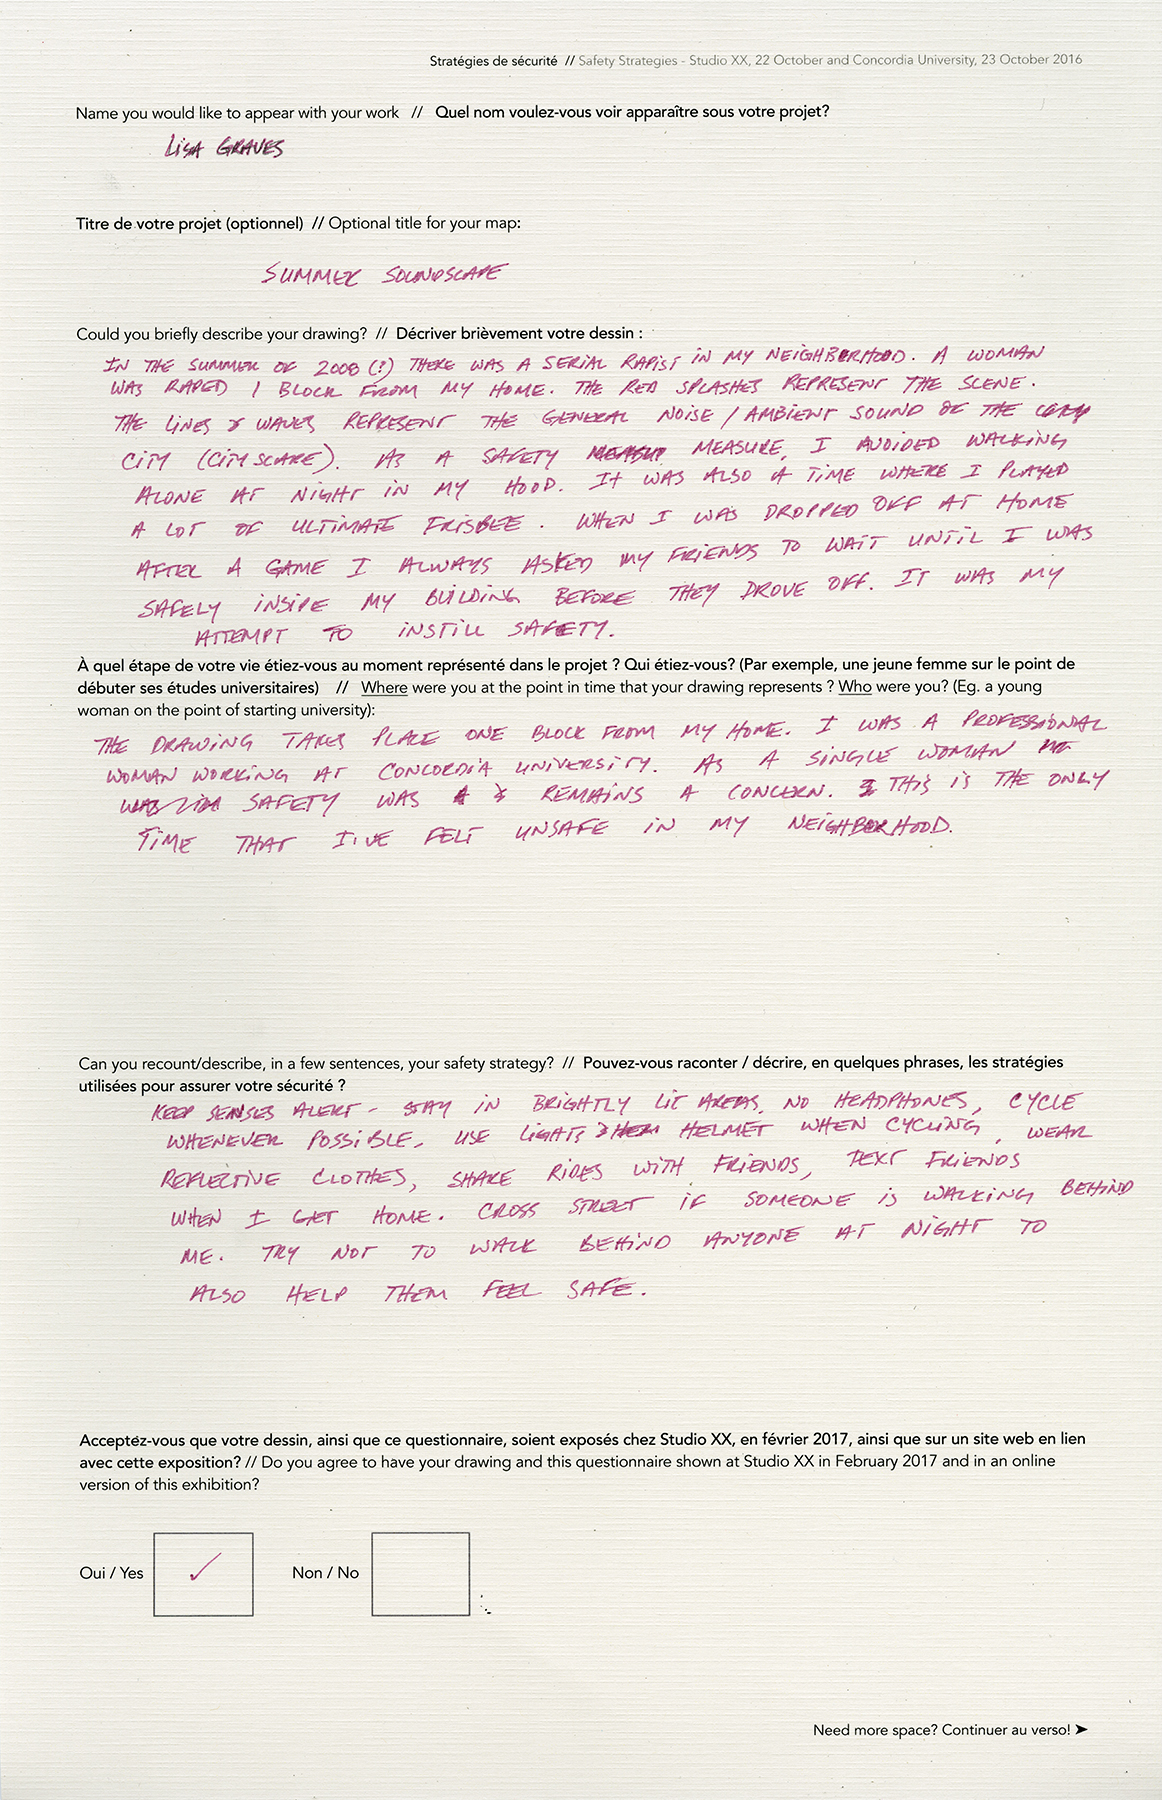 Stratégies de sécurité // Safety Strategies - Studio XX, 22 October and Concordia University, 23 October 2016
Name you would like to appear with your work // Quel nom voulez-vous voir apparaître sous votre projet?
LISA GRAVES
Titre de votre projet (optionnel) // Optional title for your map:
SUMMER SOUNDSCAPE
Could you briefly describe your drawing? // Décriver brièvement votre dessin :
IN THE SUMMER OF 2008 (?) THERE WAS A SERIAL RAPIST IN MY NEIGHBORHOOD. A WOMAN
WAS RAPED 1 BLOCK FROM MY HOME. THE RED SPLASHES REPRESENT THE SCENE.
THE LINES & WAVES REPRESENT THE GENERAL NOISE / AMBIENT SOUND OF THE
CITY (CITYSCAPE). AS A SAFETY MEASURE, I AVOIDED WALKING
ALONE AT NIGHT IN MY HOOD. IT WAS ALSO A TIME WHERE I PLAYED
A LOT OF ULTIMATE FRISBEE. WHEN I WAS DROPPED OFF AT HOME
AFTER A GAME I ALWAYS ASKED MY FRIENDS TO WAIT UNTIL I WAS
SAFELY INSIDE MY BUILDING BEFORE THEY DROVE OFF. IT WAS MY
ATTEMPT TO INSTILL SAFETY.
À quel étape de votre vie étiez-vous au moment représenté dans le projet ? Qui étiez-vous? (Par exemple, une jeune femme sur le point de
débuter ses études universitaires) // Where were you at the point in time that your drawing represents ? Who were you? (Eg. a young
woman on the point of starting university):
THE DRAWING TAKES PLACE ONE BLOCK FROM MY HOME. I WAS A PROFESSIONAL
WOMAN WORKING AT CONCORDIA UNIVERSITY. AS A SINGLE WOMAN
SAFETY WAS & REMAINS A CONCERN. THIS IS THE ONLY
TIME THAT I'VE FELT UNSAFE IN MY NEIGHBORHOOD.
Can you recount/describe, in a few sentences, your safety strategy? // Pouvez-vous raconter / décrire, en quelques phrases, les stratégies
utilisées pour assurer votre sécurité ?
KEEP SENSES ALERT - STAY IN BRIGHTLY LIT AREAS, NO HEADPHONES, CYCLE
WHENEVER POSSIBLE, USE LIGHTS & HELMET WHEN CYCLING, WEAR
REFLECTIVE CLOTHES, SHARE RIDES WITH FRIENDS, TEXT FRIENDS
WHEN I GET HOME. CROSS STREET IF SOMEONE IS WALKING BEHIND
ME. TRY NOT TO WALK BEHIND ANYONE AT NIGHT TO
ALSO HELP THEM FEEL SAFE.
Acceptez-vous que votre dessin, ainsi que ce questionnaire, soient exposés chez Studio XX, en février 2017, ainsi que sur un site web en lien
avec cette exposition? // Do you agree to have your drawing and this questionnaire shown at Studio XX in February 2017 and in an online
version of this exhibition?
Oui / Yes ✓ Non / No
Need more space? Continuer au verso! ➤